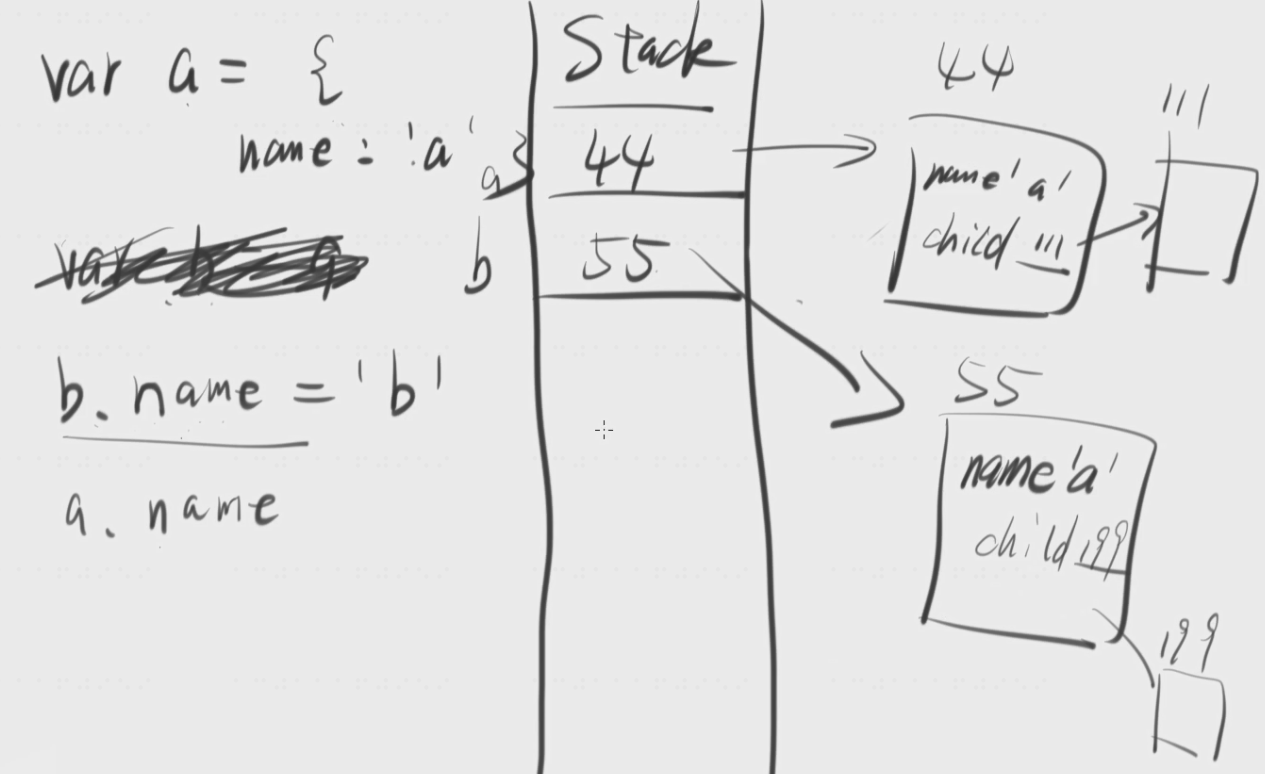 var a = {
name : 'a'
b. name = 'b'
a. name
Stack
a 44
b 55
44
name 'a'
child 111
111
55
name 'a'
child 199
199